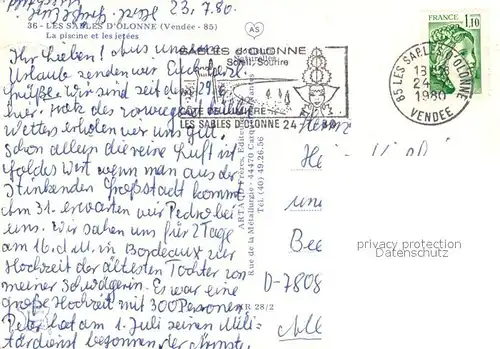 23.7.80.
36 - LES SABLES D'OLONNE (Vendée - 85)
La piscine et les jetées
SABLES d'OLONNE
Naturelles
Soleil, Sourire
CÔTE DE LUMIÈRE
LES SABLES D'OLONNE 24-7-80
FRANCE
1,10
85 LES SABLES D'OLONNE
1980
VENDÉE
Ihr Lieben! aus unserem
Urlaube senden wir Euch herzl.
Grüße. Wir sind seit dem 29.6.
hier. Trotz des vorwiegend
Wetters erholen wir uns gut.
Schon allein die reine Luft ist
Goldes Wert wenn man aus der
stinkenden Großstadt kommt
Am 31. erwarten wir Pedro bei
uns. Wir sahen uns für 2 Tage
am 16. d.M. in Bordeaux zur
Hochzeit der ältesten Tochter von
meiner Schwägerin. Es war eine
Hochzeit mit 300 Personen.
Peter hat am 1. Juli seinen Mili-
tärdienst begonnen der Ärmste
ARTAUD Frères, Editeurs
Rue de la Métallurgie - 44470 Carquefou
Tél. (40) 49.26.56
KR 28/2
D-7808
privacy protection
Datenschutz